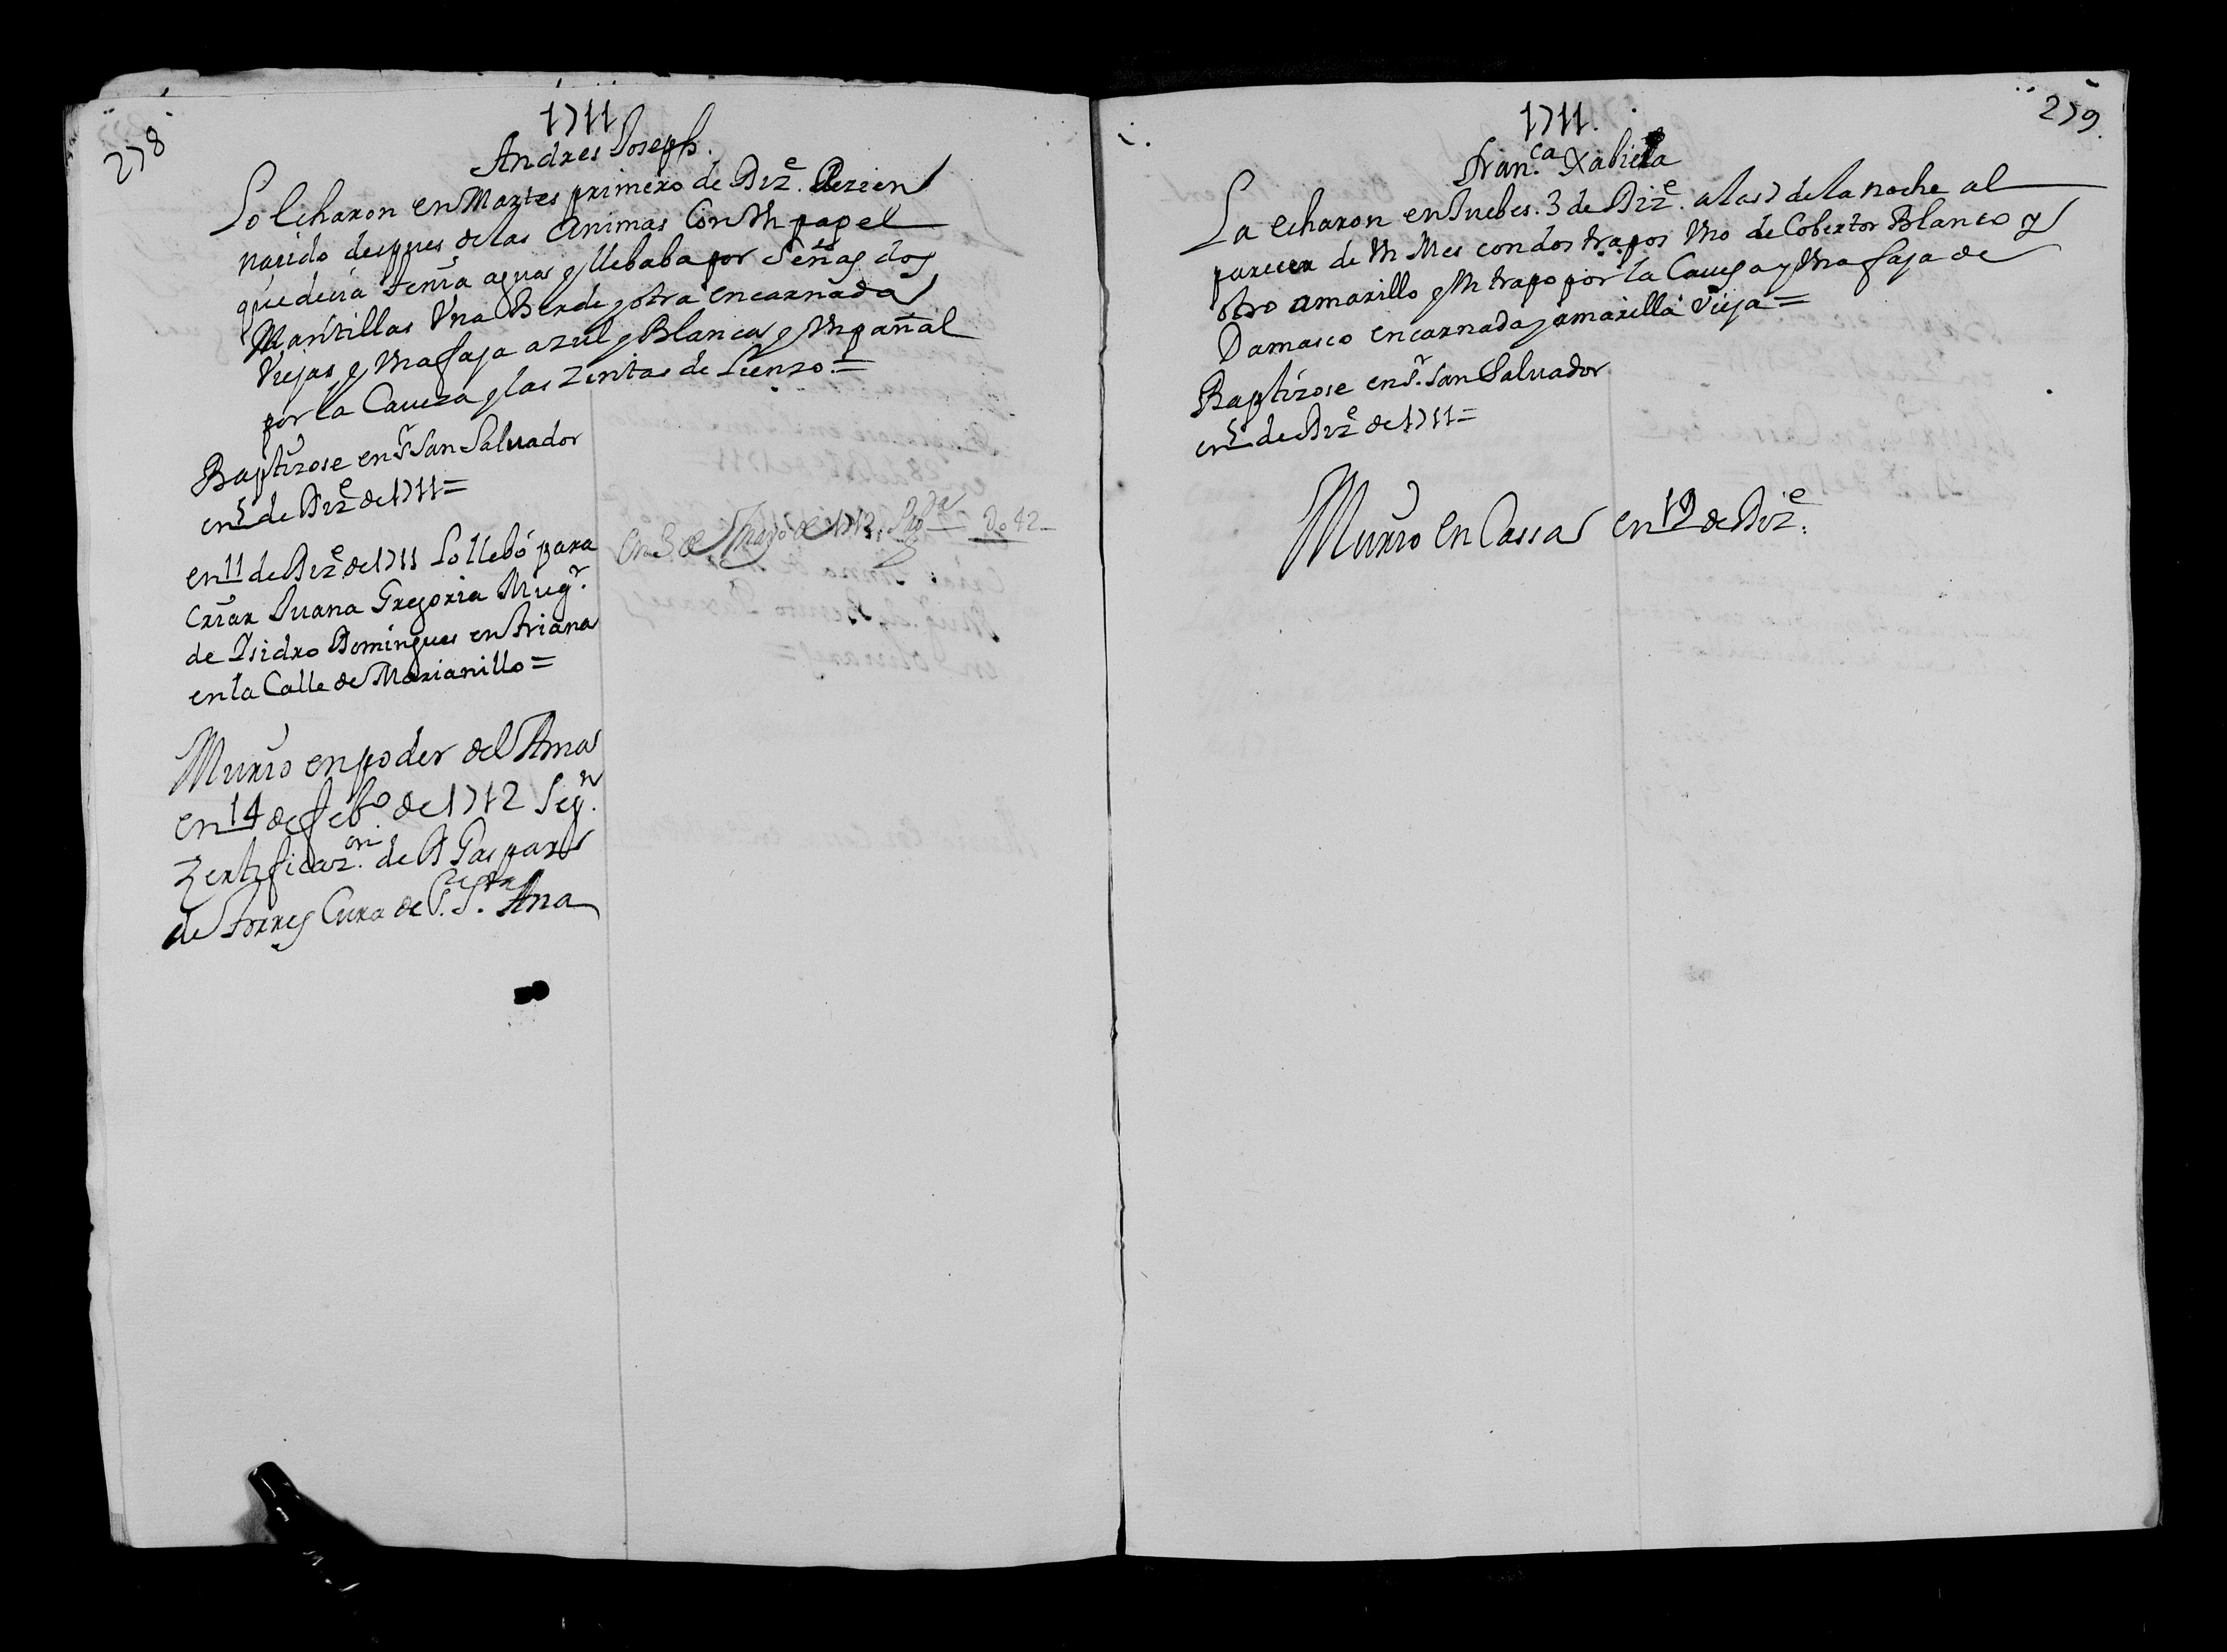 278
1711
Andres Joseph.
Lo Echaron en Martes primero de Dizᵉ. Rezien
nacido despues de las Animas Con Vn papel
que decia tenia aguas y llebaba por Señas dos
Mantillas Vna Berde y otra encarnada
Viejas y Vna faja azul y Blanca y Vn pañal
por la Caueza y las Zintas de Lienzo.=
Baptizose en Sʳ San Saluador
en 5 de Dizᵉ de 1711=
en 11 de Dizᵉ de 1711 Lo llebó para
Criar Juana Gregoria Mugʳ.
de Isidro Domingues en Triana
en la Calle de Marianillo=
Murio en poder del Ama
en 14 de febᵒ de 1712 Segⁿ.
Zertificazᵒⁿ. de D Gaspar
de Torres Cura de Sʳᵃ Sᵗᵃ. Ana
en 3 de Mayo de 1712.
279.
1711.
Franᶜᵃ. Xabiela
La echaron en Juebes. 3 de Dizᵉ. a las 7 de la noche al
parecer de Vn Mes con dos trapos Vno de Cobertor Blanco y
otro amarillo y Vn trapo por la Caueza y Vna faja de
Damasco encarnada y amarilla Vieja=
Baptizose en Sʳ. San Saluador
en 5 de Dizᵉ de 1711=
Murio en Cassa en 19 de Dizᵉ.